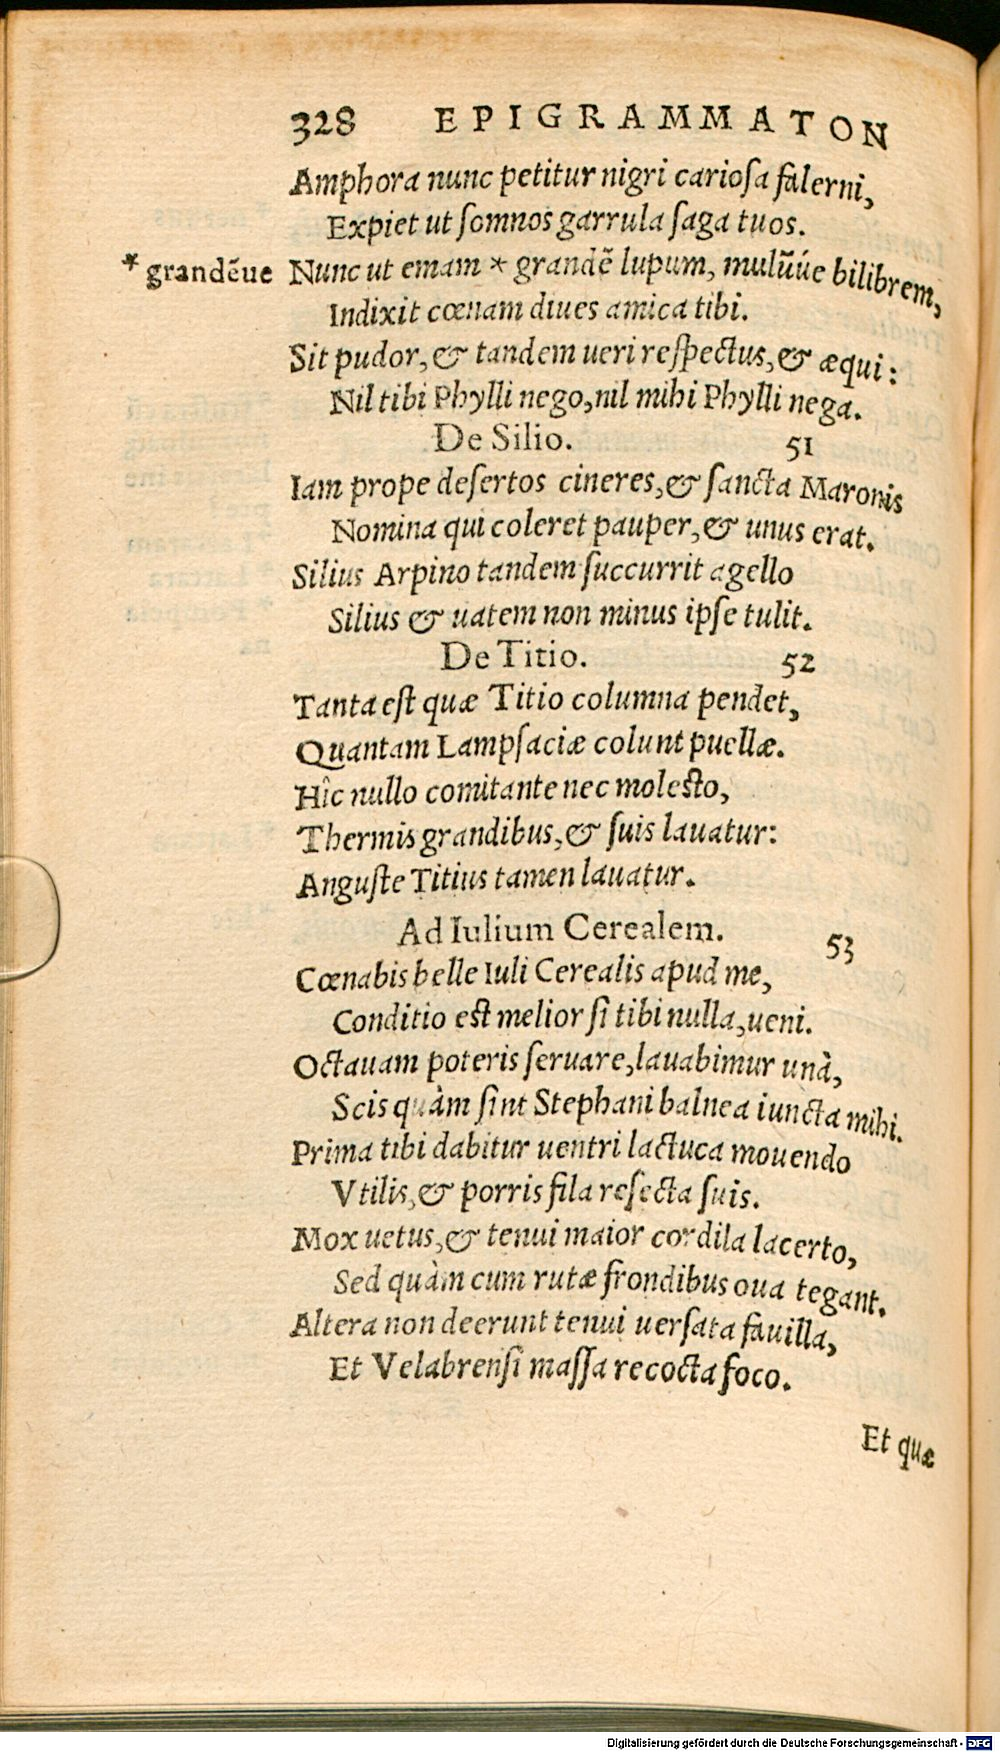 328 EPIGRAMMATON
Amphora nunc petitur nigri carioſa falerni,
Expiet ut ſomnos garrula ſaga tuos.
* grandẽue Nunc ut emam * grandẽ lupum, mulũúe bilibrem,
Indixit cœnam diues amica tibi.
Sit pudor, & tandem ueri reſpectus, & æqui:
Nil tibi Phylli nego, nil mihi Phylli nega.
De Silio. 51
Iam prope deſertos cineres, & ſancta Maronis
Nomina qui coleret pauper, & unus erat.
Silius Arpino tandem ſuccurrit agello
Silius & uatem non minus ipſe tulit.
De Titio. 52
Tanta eſt quæ Titio columna pendet,
Quantam Lampſaciæ colunt puellæ.
Hîc nullo comitante nec moleſto,
Thermis grandibus, & ſuis lauatur:
Anguſte Titius tamen lauatur.
Ad Iulium Cerealem. 53
Cœnabis belle Iuli Cerealis apud me,
Conditio eſt melior ſi tibi nulla, ueni.
Octauam poteris ſeruare, lauabimur unà,
Scis quàm ſint Stephani balnea iuncta mihi.
Prima tibi dabitur uentri lactuca mouendo
Vtilis, & porris fila reſecta ſuis.
Mox uetus, & tenui maior cordila lacerto,
Sed quàm cum rutæ frondibus oua tegant.
Altera non deerunt tenui uerſata fauilla,
Et Velabrenſi maſſa recocta foco.
Et quæ
Digitalisierung gefördert durch die Deutsche Forschungsgemeinschaft - DFG